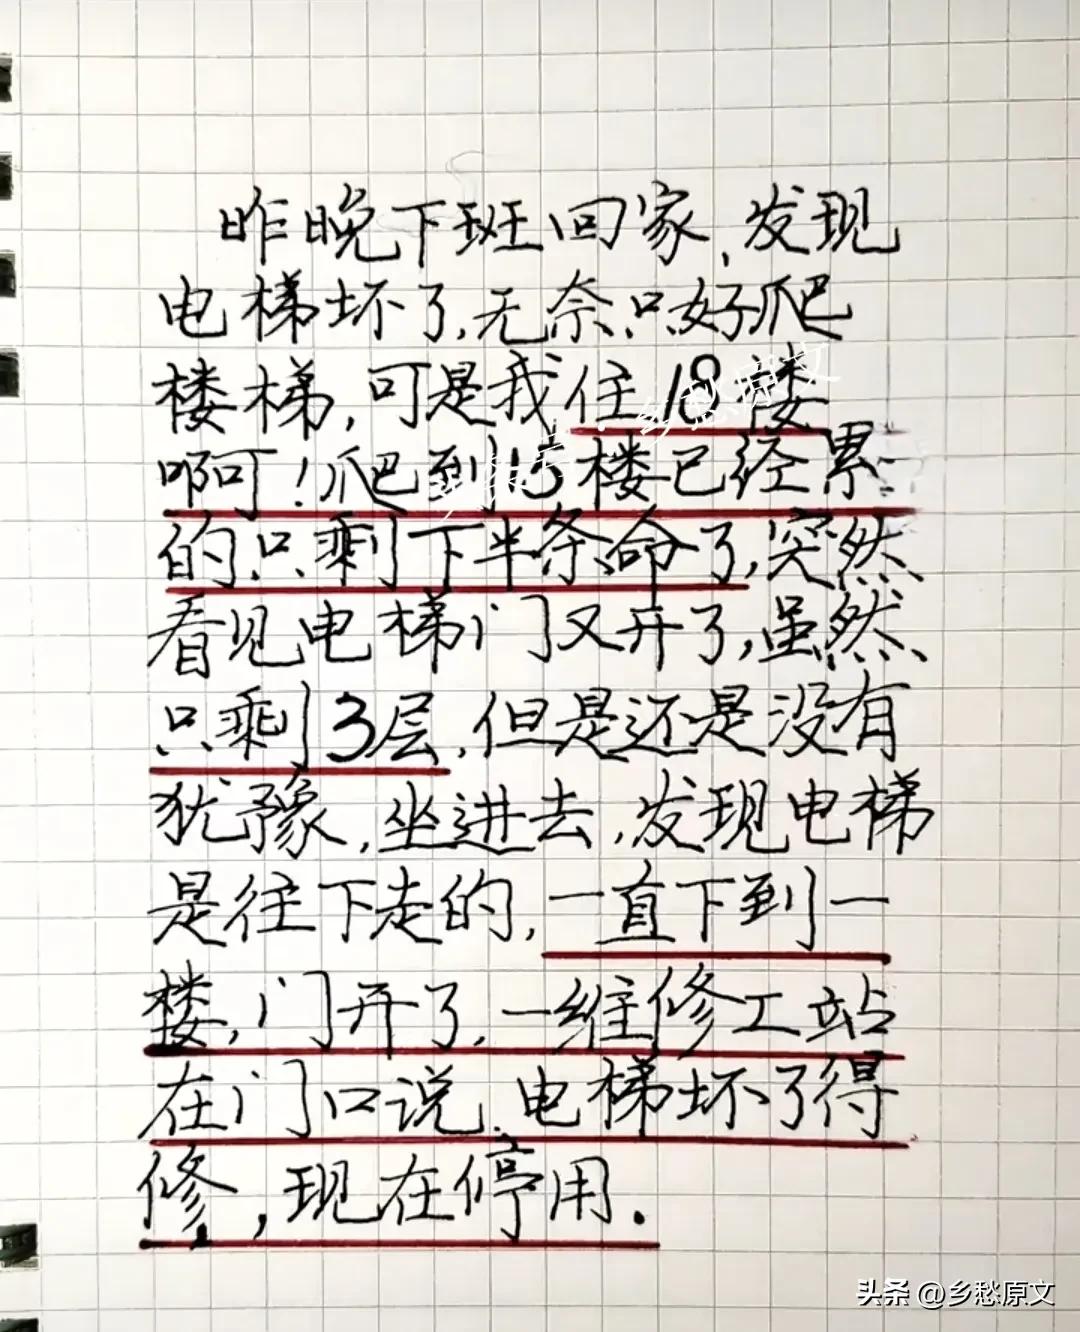 昨晚下班回家,发现
电梯坏了,无奈只好爬
楼梯,可是我住18楼
啊可!爬到15楼已经累
的只剩下半条命了,突然
看见电梯门又开了,虽然
只剩3层,但是还是没有
犹豫,坐进去,发现电梯
是往下走的,一直下到一
楼,门开了,一维修工站
在门口说,电梯坏了得
修,现在停用.
乡愁原文
头条 @乡愁原文